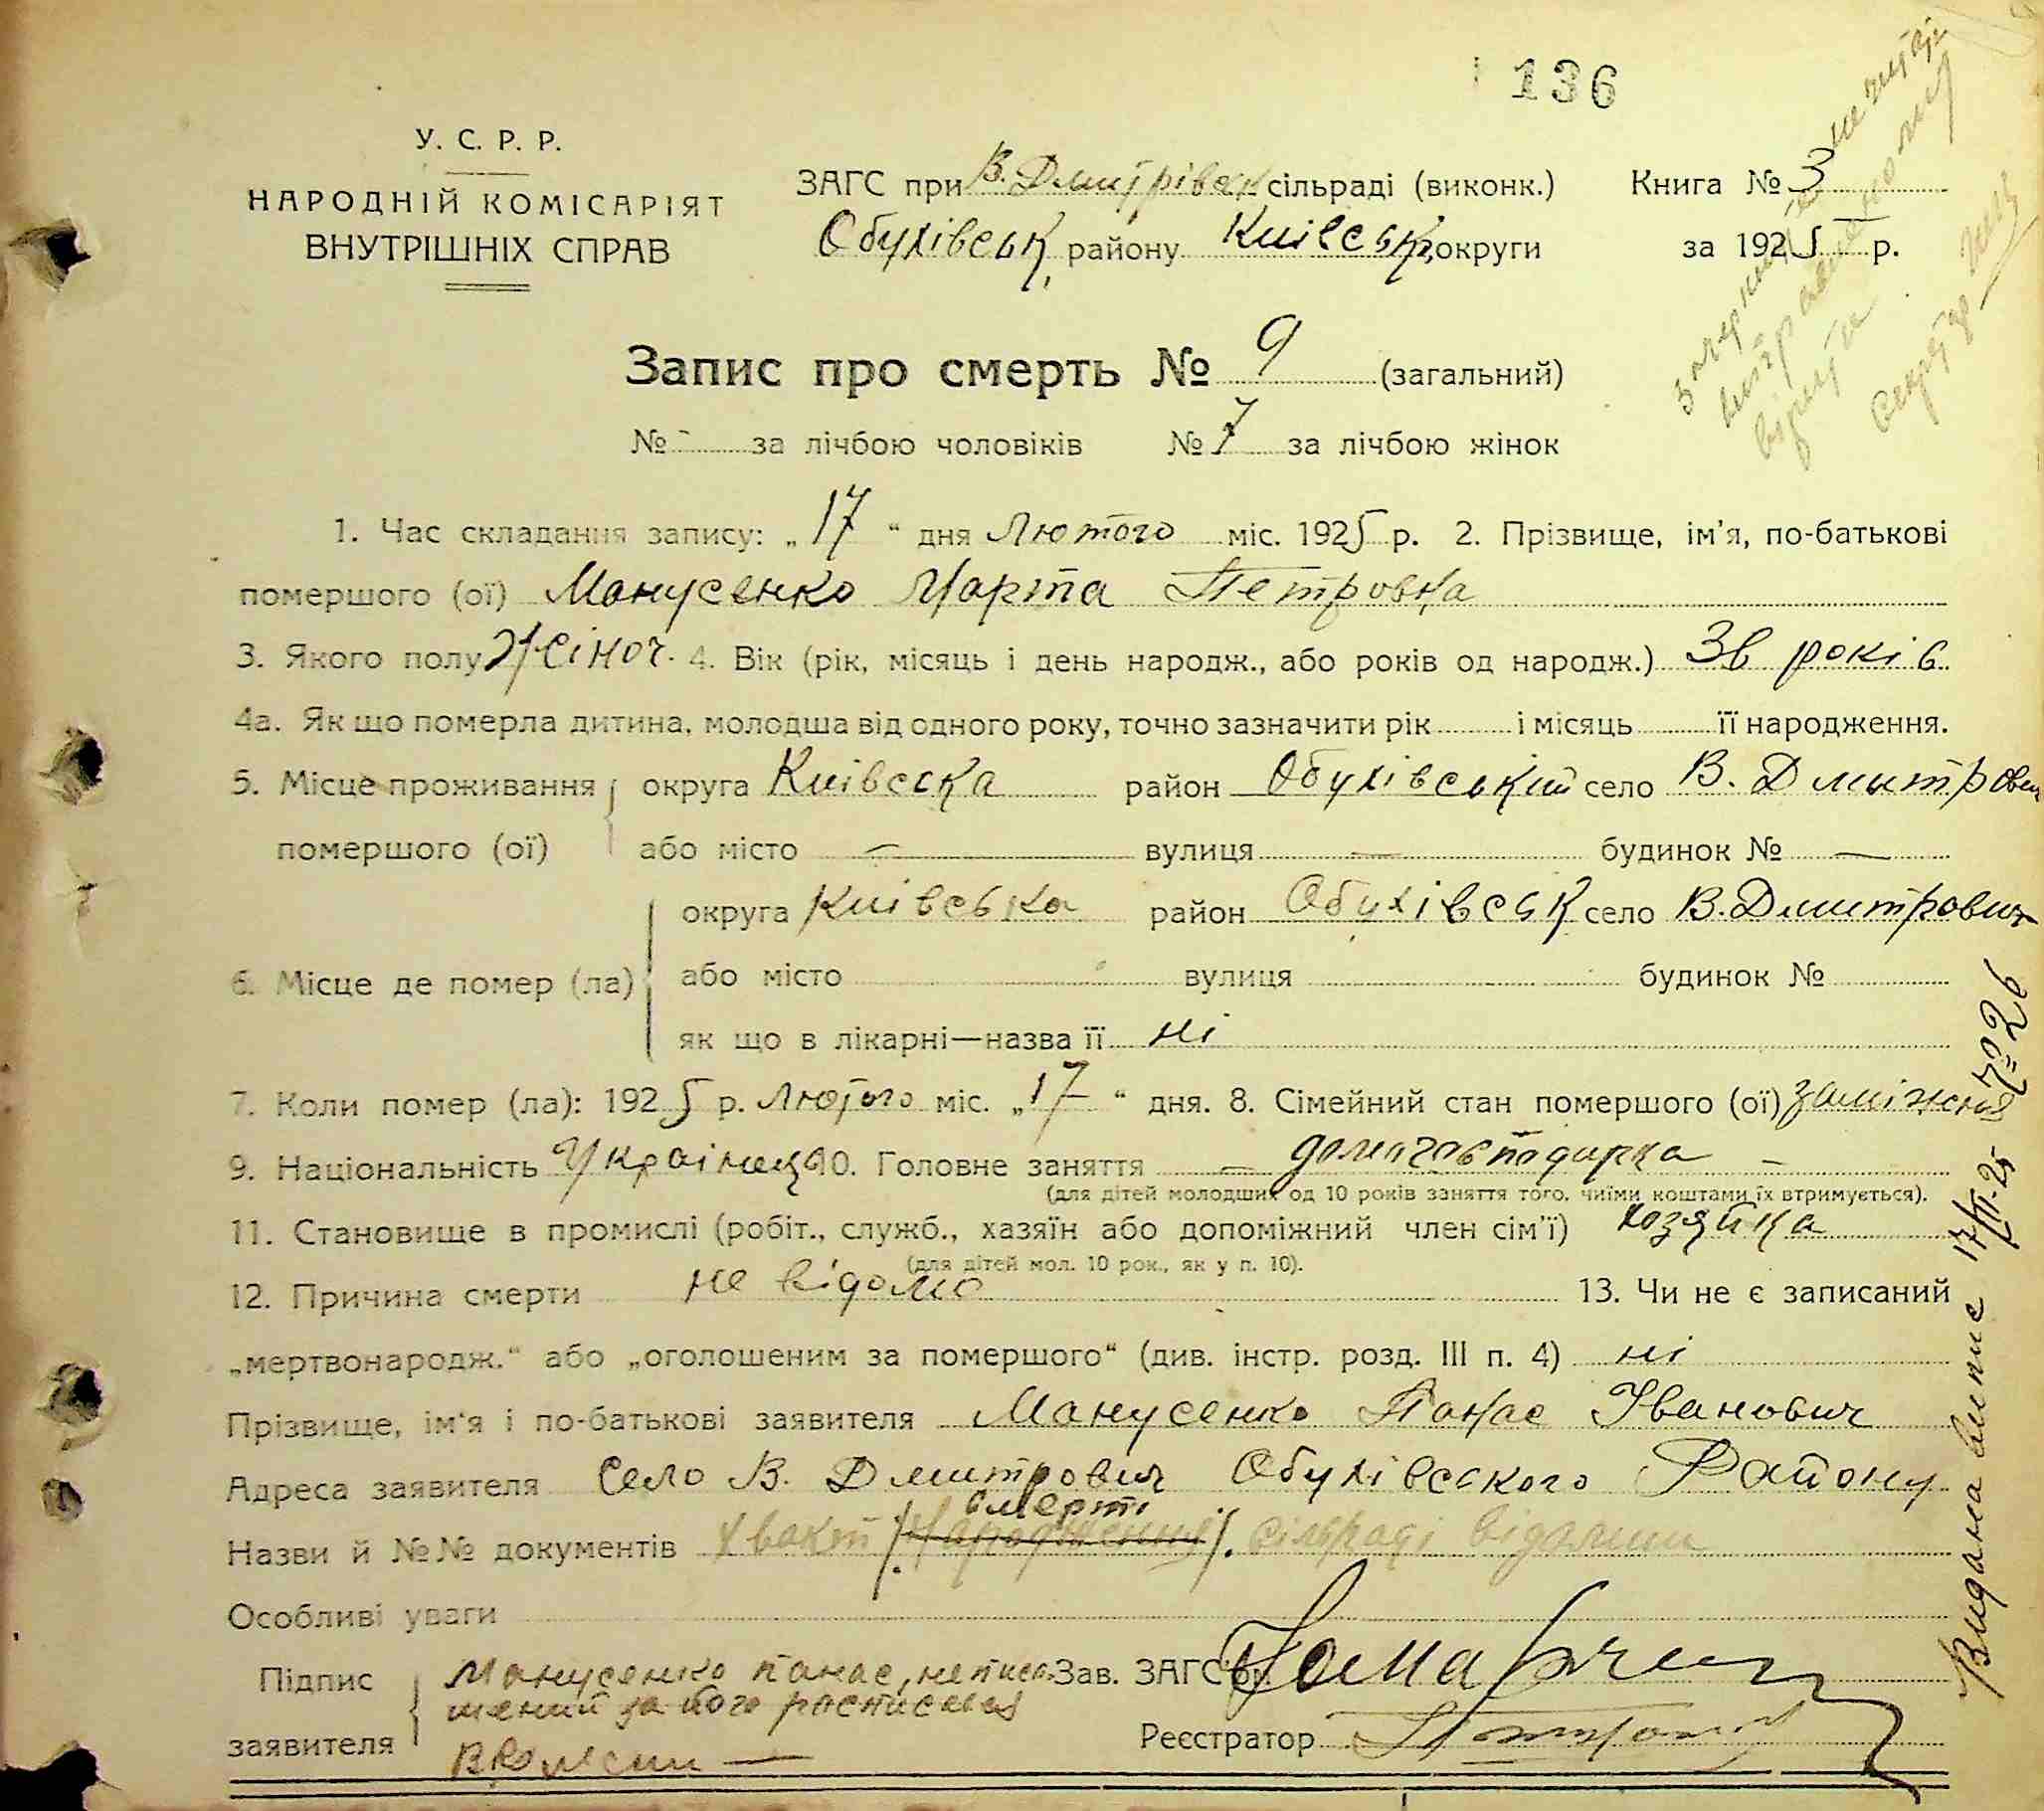 136
У. С. Р. Р.
НАРОДНІЙ КОМІСАРІЯТ
ВНУТРІШНІХ СПРАВ
ЗАГС при В. Дмитрівск сільраді (виконк.)
Обухівськ. району Київськ. округи
Книга № 3
за 1925 р.
Запис про смерть № 9 (загальний)
№ - за лічбою чоловіків № 7 за лічбою жінок
1. Час складання запису: „17“ дня Лютого міс. 1925 р. 2. Прізвище, ім'я, по-батькові
помершого (ої) Манусенко Марта Петровна
3. Якого полу Жіноч. 4. Вік (рік, місяць і день народж., або років од народж.) 36 років
4а. Як що померла дитина, молодша від одного року, точно зазначити рік і місяць її народження.
5. Місце проживання помершого (ої) округа Київська район Обухівський село В. Дмытрович
або місто — вулиця — будинок № —
6. Місце де помер (ла) округа Київська район Обухівськ село В. Дмитрович
або місто вулиця будинок №
як що в лікарні—назва її ні
7. Коли помер (ла): 1925 р. Лютого міс. „17“ дня. 8. Сімейний стан помершого (ої) заміжня
9. Національність Українка 10. Головне заняття — домогосподарка —
(для дітей молодших од 10 років заняття того, чиїми коштами їх втримується).
11. Становище в промислі (робіт., служб., хазяїн або допоміжний член сім'ї) хозяйка
(для дітей мол. 10 рок., як у п. 10).
12. Причина смерти не відомо 13. Чи не є записаний
„мертвонародж.“ або „оголошеним за помершого“ (див. інстр. розд. III п. 4) ні
Прізвище, ім'я і по-батькові заявителя Манусенко Панас Іванович
Адреса заявителя Село В. Дмитрович Обухівського Району
смерті
Назви й №№ документів факт народження сільраді відомий
Особливі уваги
Підпис заявителя Манусенко Панас, неписьменний за його росписався
Зав. ЗАГС'ом
Реєстратор
Видана випис 17/III-25 № 26
Секретар